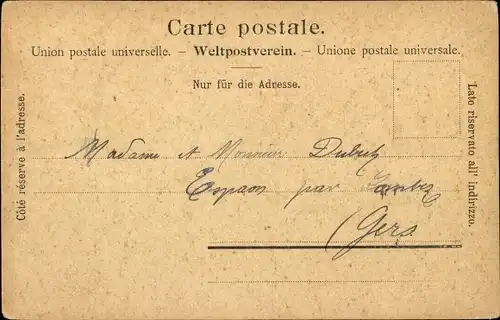 Carte postale.
Union postale universelle. – Weltpostverein. – Unione postale universale.
Nur für die Adresse.
Côté réservé à l'adresse.
Lato riservato all' indirizzo.
Madame et Monsieur
Espaon par
(Gers